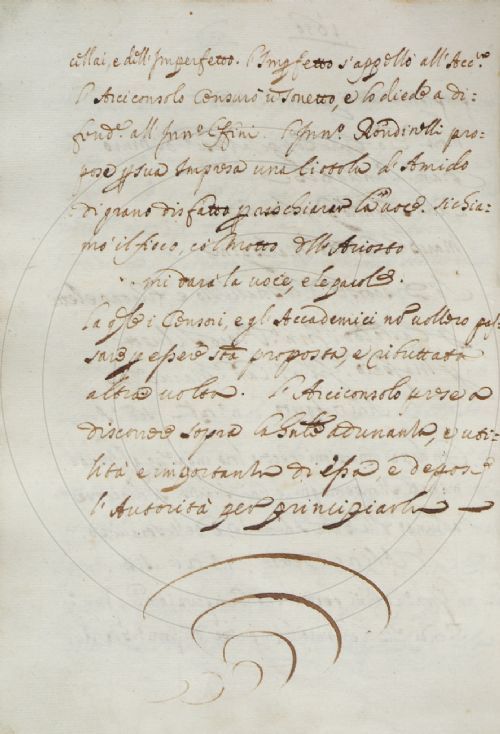 cellai, e dell'Imperfetto. L'Impfetto s'appellò all'Acc:
L'Arciconsolo Censurò ù Sonetto, e lo diede a di-
fend: all'Inn: L'Inn: Rondinelli pro-
pose p sua Impresa una Ciotola d'Amido
di grano disfatto p rischiarar la voce. si chia-
mò il fioco, col motto dell'Ariosto
mi darà la voce, e le parole.
La qle i Censori, e gl'Accademici nõ vollero pas-
sare p essere sta proposta, e ributtata
altra volta. L'Arciconsolo prese a
discorrere sopra la adunanza, e uti-
lità e importanza di essa e depose
l'Autorità per principiarla